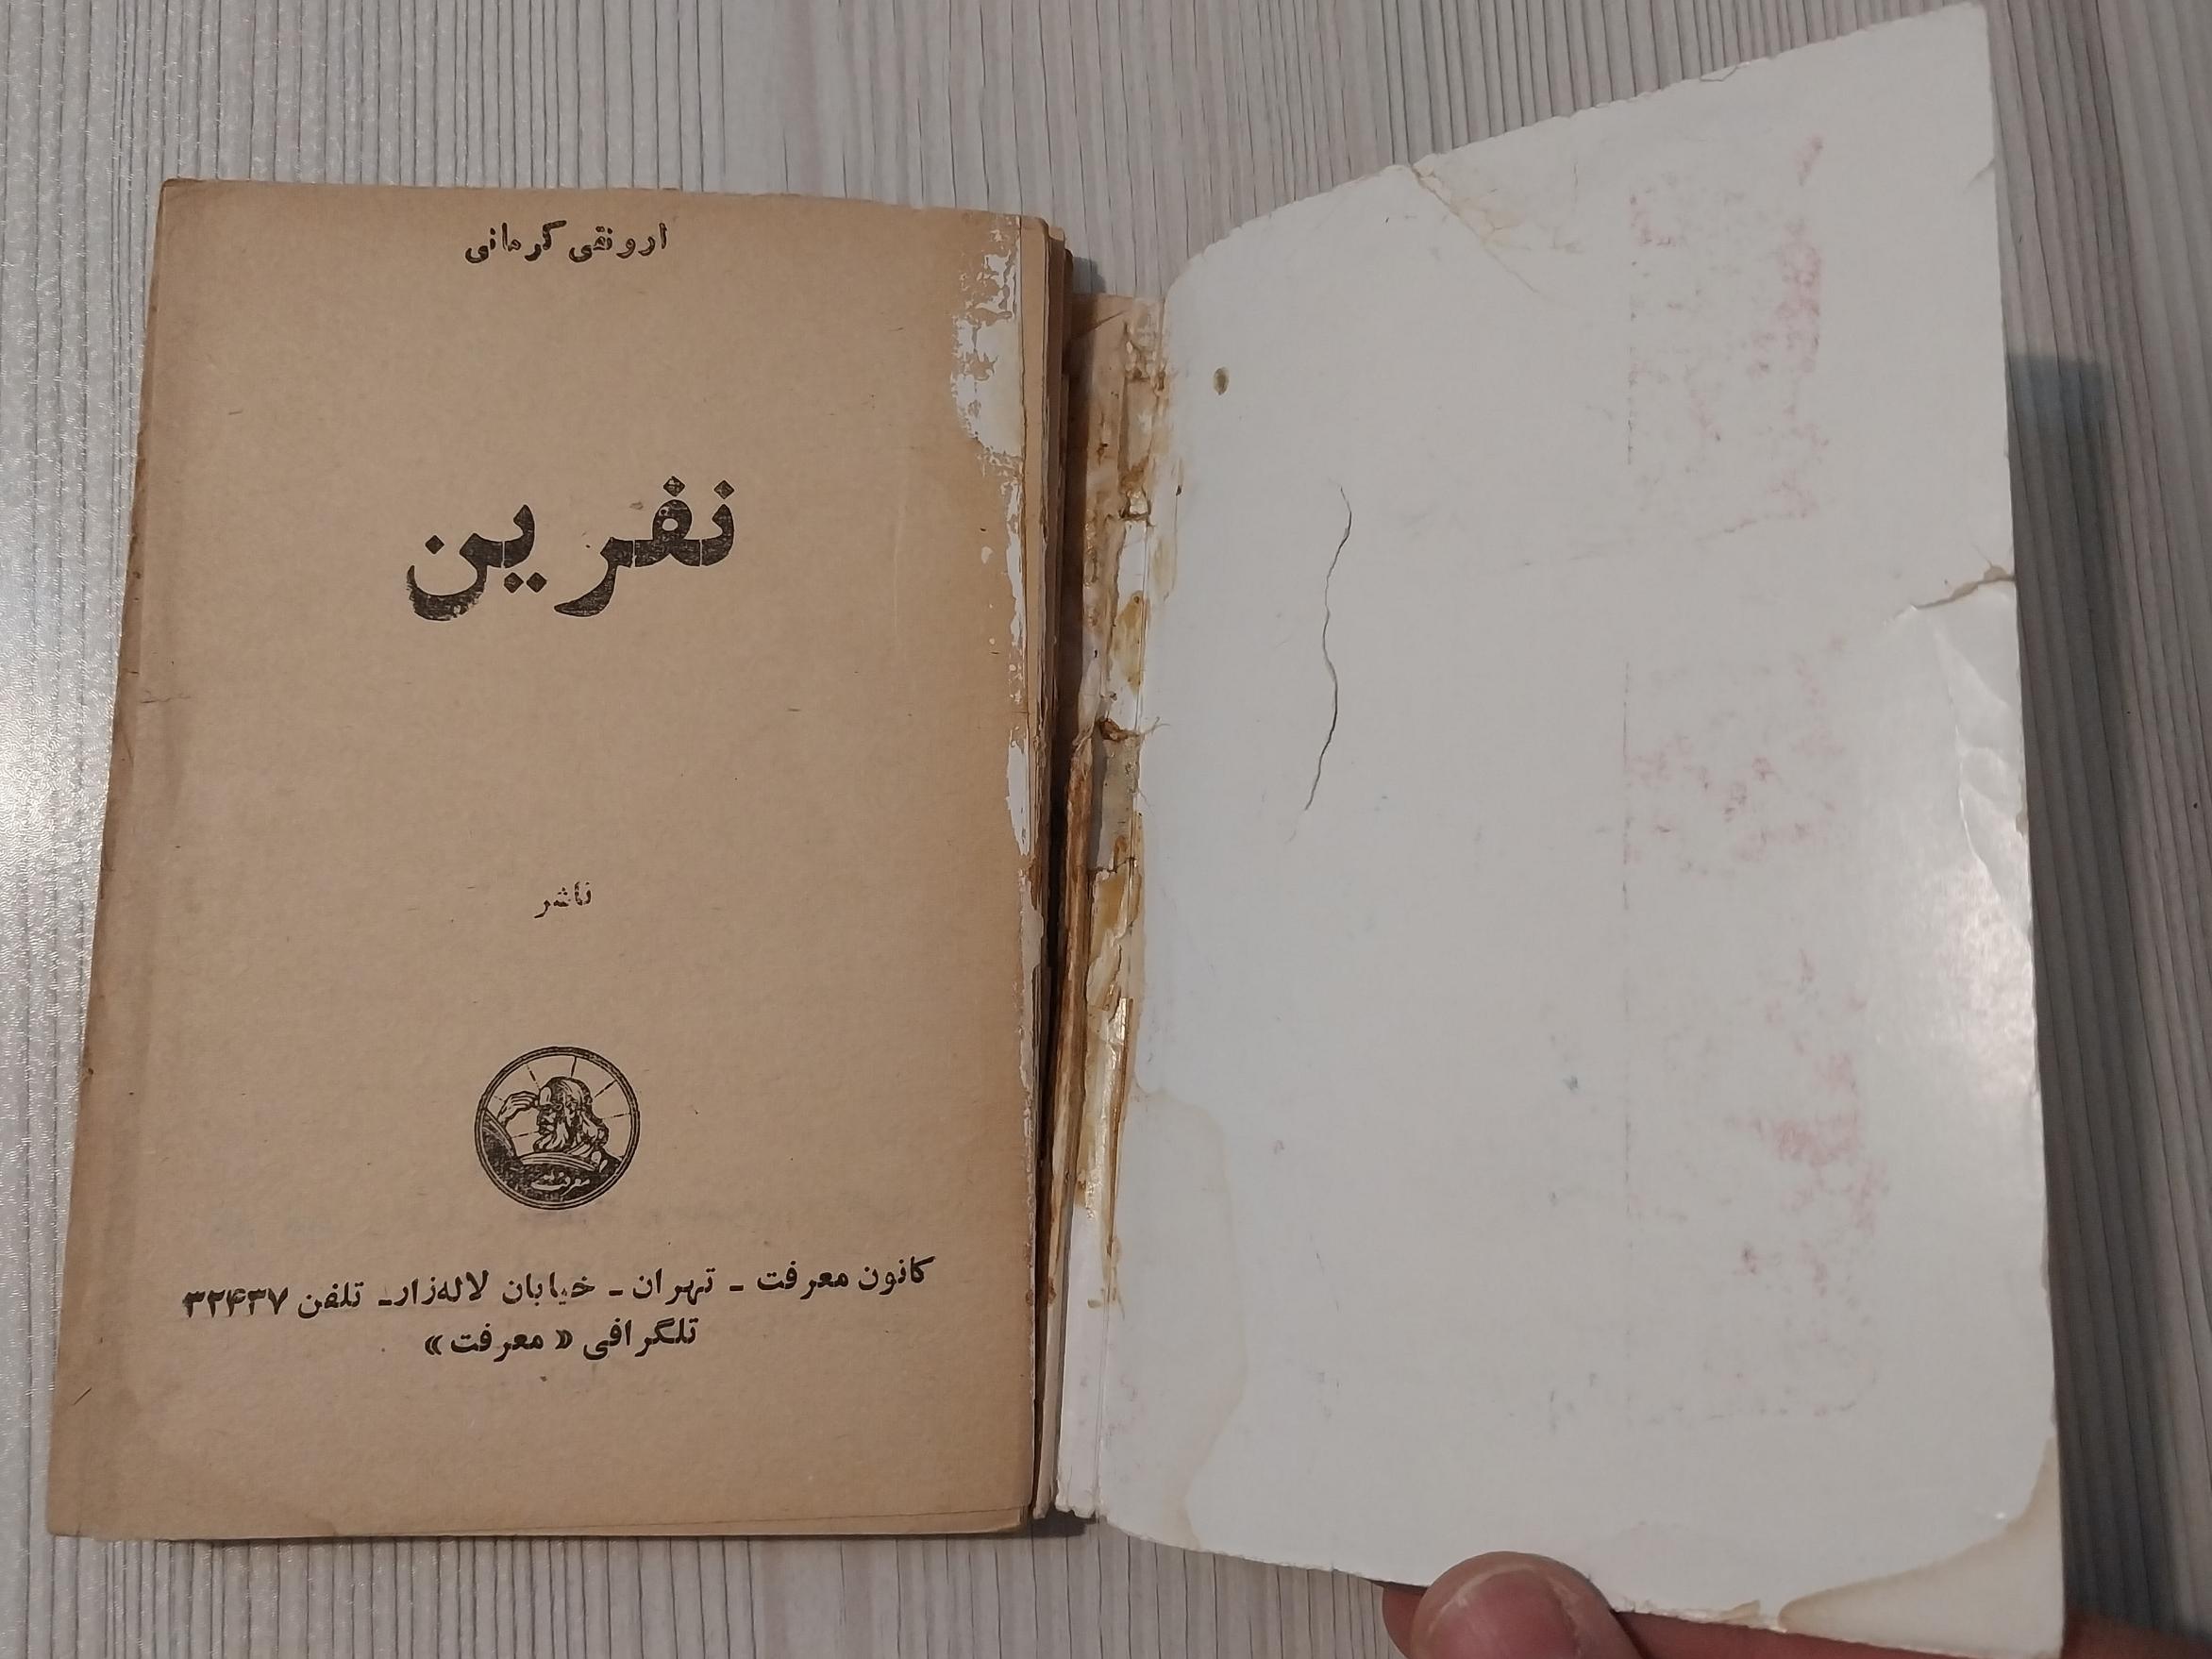 ارونقی کرمانی
نفرین
ناشر
معرفت
کانون معرفت ـ تهران ـ خیابان لاله‌زار ـ تلفن ۳۲۴۳۷
تلگرافی «معرفت»